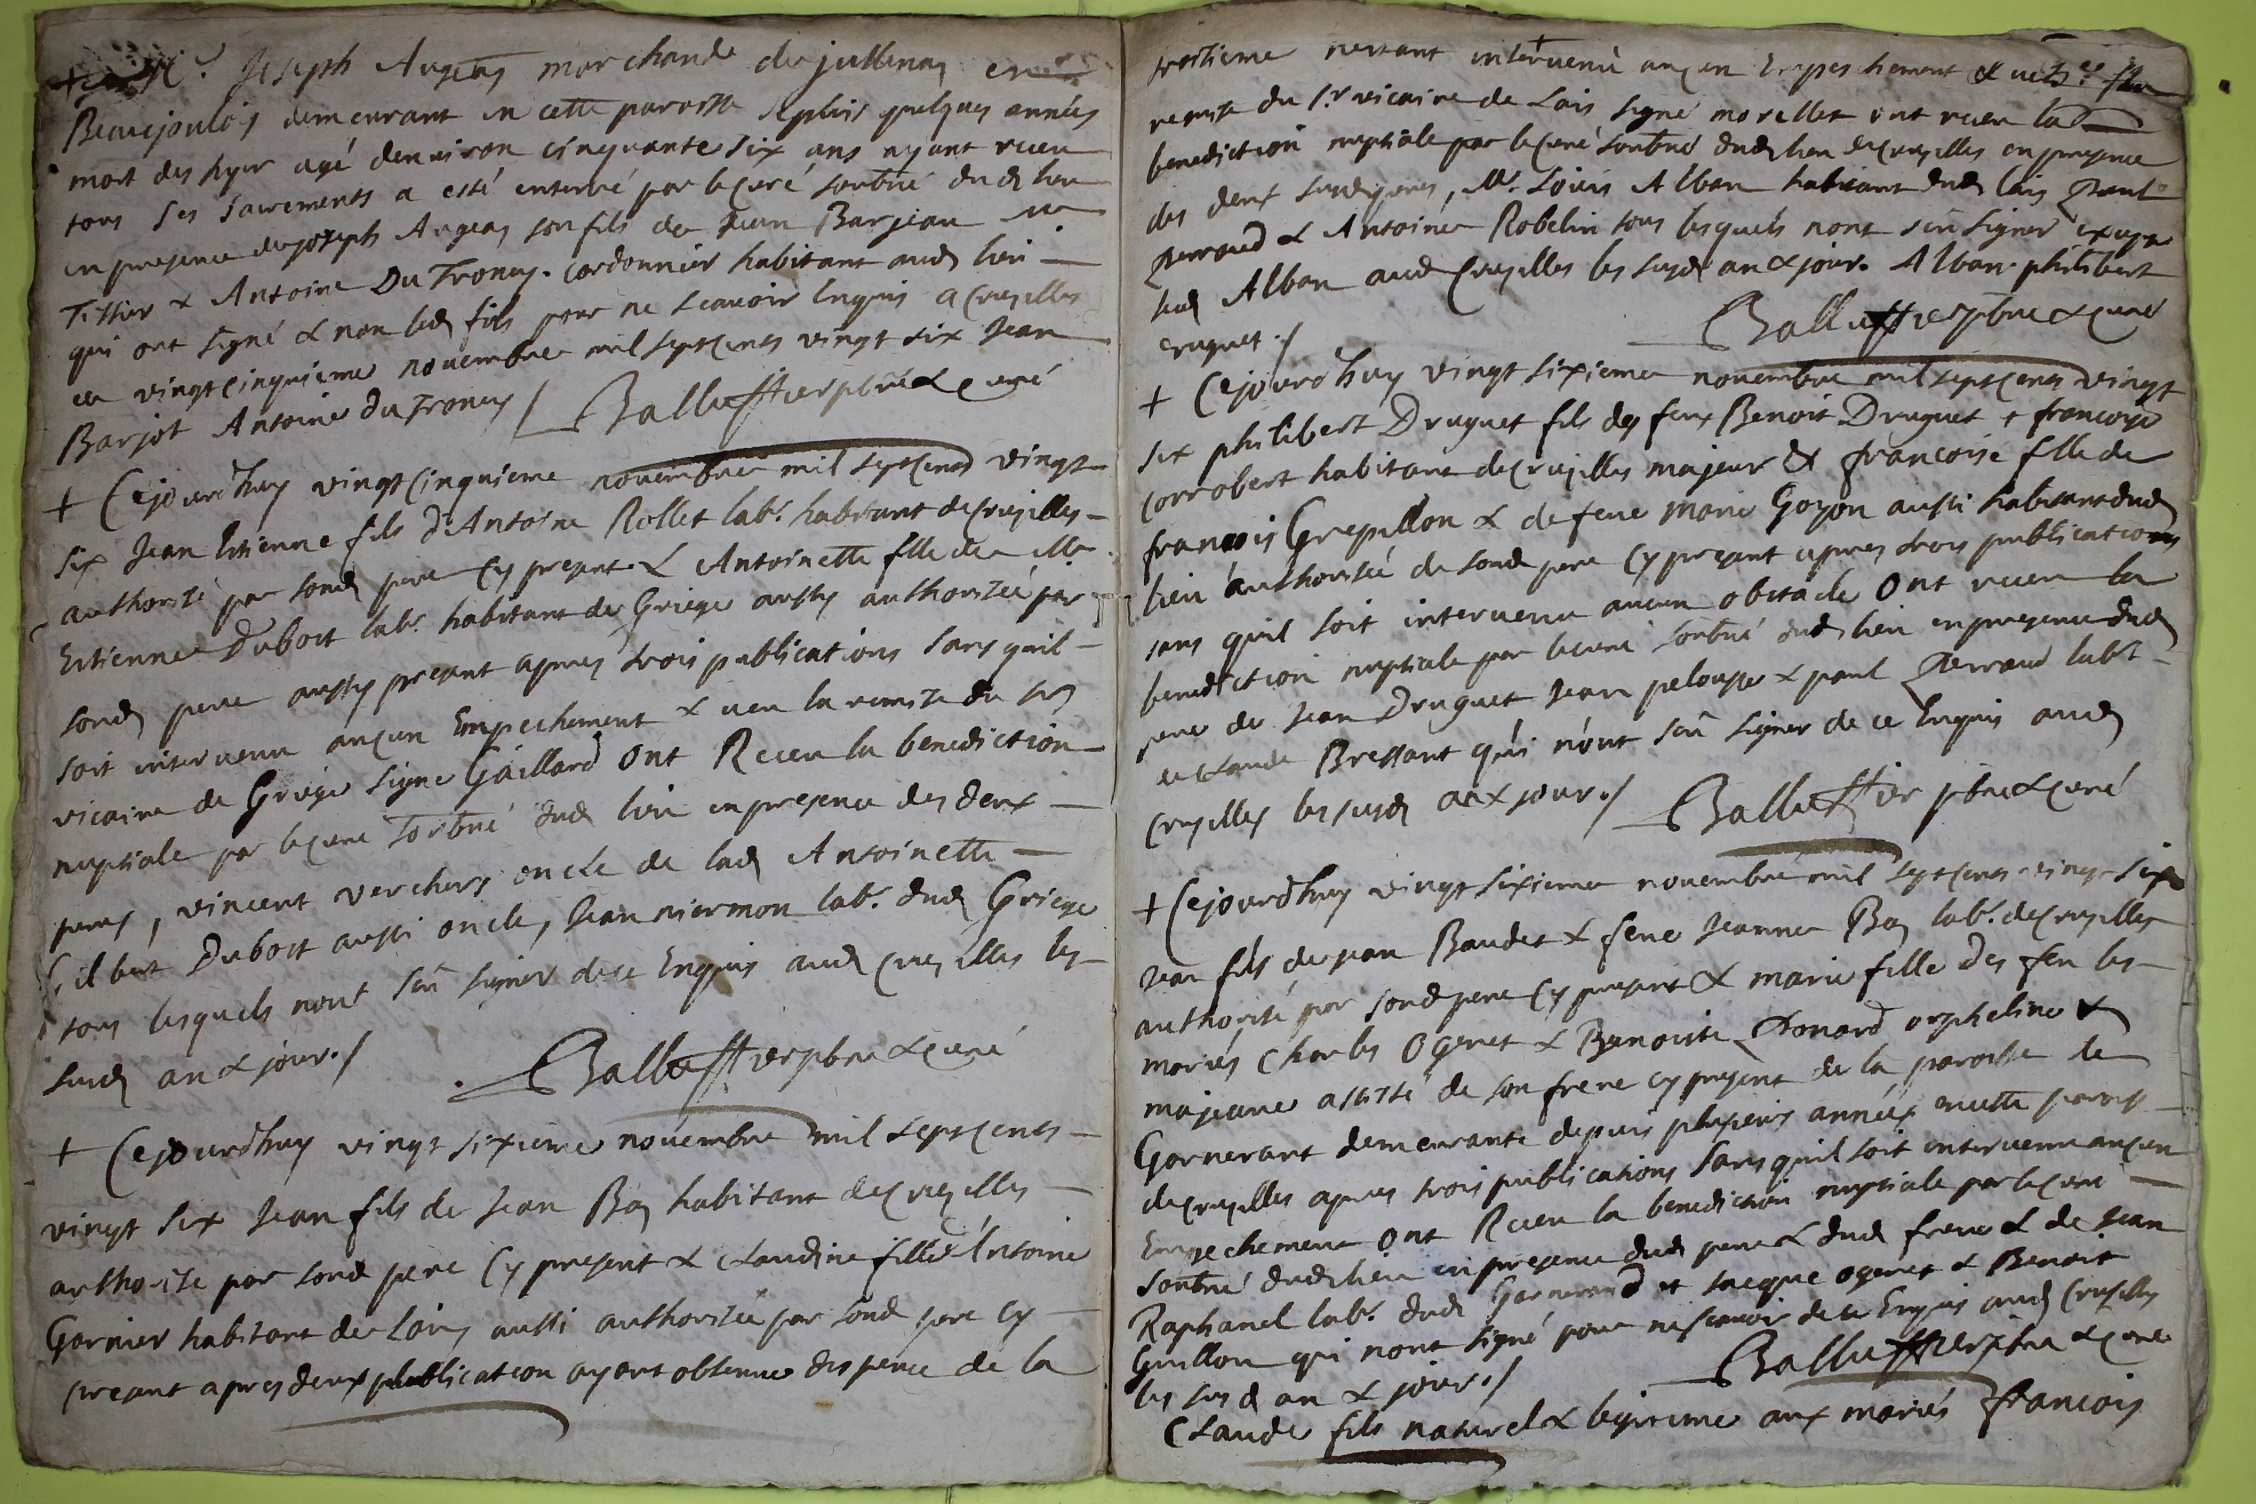 Joseph Augeas marchand de jullenas en
Beaujoulois demeurant en cette paroisse depuis quelques années
mort des hyer agé denviron cinquante six ans ayant receu
tous ses sacrements a esté enterré par le curé soubné dud lieu
en presence de joseph Augeas son fils de Jean Barjeau
Tissier & Antoine Du Troncy cordonnier habitant aud lieu
qui ont signé & non led fils pour ne scavoir Enquis a Cruzilles
ce vingt cinquieme novembre mil sept cents vingt six Jean
Barjot Antoine du Troncy / Balluffier pbre & curé
+ Cejourdhuy vingt cinquieme novembre mil sept cents vingt
six Jean Estienne fils d'Antoine Rollet labr. habitant de Cruzilles
authorisé par sond pere cy present & Antoinette fille de
Estienne Dubost labr. habitant de Griege aussy authorisée par
sond pere aussy present apres trois publications sans quil
soit intervenu aucun Empechement & veu la remise du
vicaire de Griege signé Gaillard Ont Receu la benediction
nuptiale par le curé soubné dud lieu en presence des deux
peres, vincent verchere oncle de lad Antoinette
Gilbert Dubost aussi oncle, Jean niermon labr. dud Griege
tous lesquels nont sçu signer de ce Enquis aud Cruzilles les
susd an & jour ./ Balluffier pbre & curé
+ Cejourdhuy vingt sixieme novembre mil sept cents
vingt six Jean fils de Jean Bay habitant de Cruzilles
authorisé par sond pere cy present & Claudine fille d'Antoine
Garnier habitant de Laiz aussi authorisée par sond pere cy
present apres deux publication ayant obtenue dispence de la
troitieme nestant intervenu aucun Empeschement & veu
remise du Sr vicaire de Lais signé morellet ont receu la
benediction nuptiale par le curé soubné dud lieu de Cruzilles en presence
des deux susd peres, Mr. Louis Alban habitant dud lais Paul
Perraud & Antoine Robelin tous lesquels nont sçu signer excepté
led Alban aud Cruzilles les susd an & jour. Alban philibert
cruguet ./ Balluffier pbre & curé
+ Cejourdhuy vingt sixieme novembre mil sept cents vingt
six philibert Druguet fils des feux Benoit Druguet & francoise
Corrobert habitant de Cruzilles majeur & francoise fille de
francois Grepillon & de feue marie Goyon aussi habitant dud
lieu authorisée de sond pere cy present apres trois publications
sans quil soit intervenu aucun obstacle Ont receu la
benediction nuptiale par le curé soubné dud lieu en presence dud
pere de Jean Druguet Jean pelousse & paul Perraud labrs
& claude Bressant qui n'ont sçu signer de ce Enquis aud
Cruzilles les susd an & jour ./ Balluffier pbre & curé
+ Cejourdhuy vingt sixieme novembre mil sept cents vingt six
Jean fils de Jean Baudet & feue Jeanne Bay labr. de Cruzilles
authorisé par sond pere cy present & marie fille des feu les
mariés Charles Ogeret & Benoiste Donard orpheline &
majeure assisté de son frere cy present de la paroisse de
Garnerant demeurante depuis plusieurs années en cette paroisse
de Cruzilles apres trois publications sans quil soit intervenu aucun
Empechement Ont Receu la benediction nuptiale par le curé
soubné dud lieu en presence dud pere & dud frere & de Jean
Raphanel labr. dud Garnerand et Jacque ogeret & Benoit
Guillon qui nont signé pour ne scavoir de ce Enquis aud Cruzilles
les susd an & jour ./ Balluffier pbre & curé
Claude fils naturel & legitime aux mariés francois